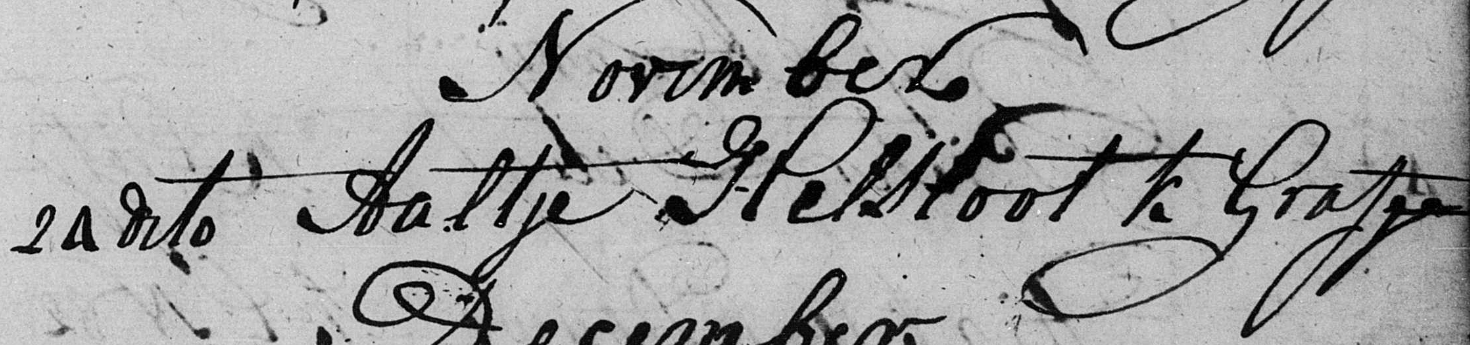 November
24 dito Aaltje Helsloot k Graft
December